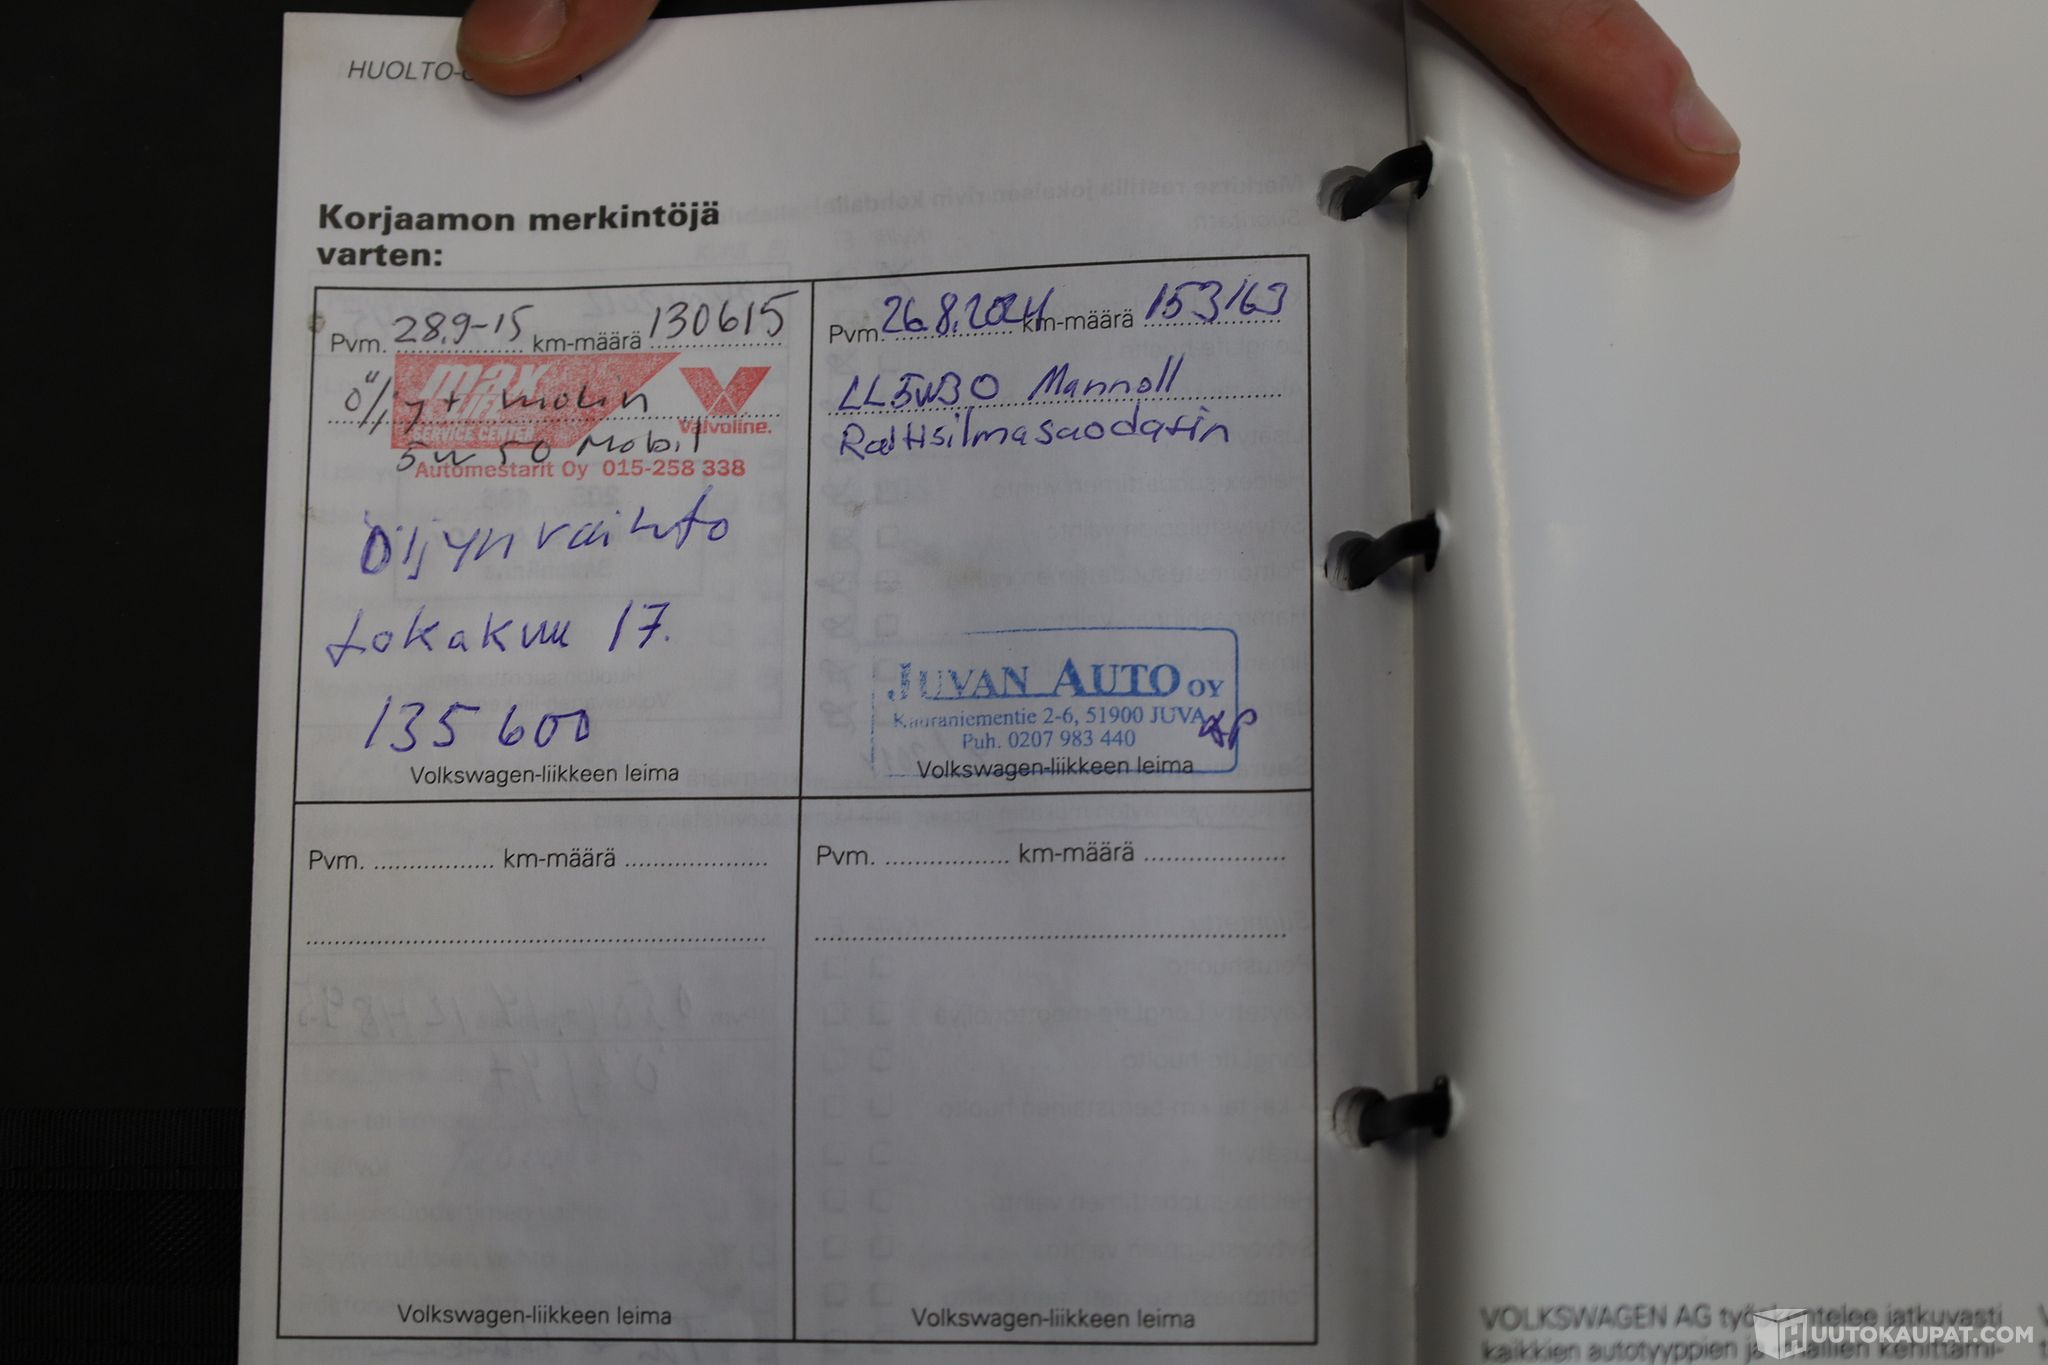 HUOLTO-
Korjaamon merkintöjä
varten:
Pvm. 28.9-15 km-määrä 130615
max
LIFE
SERVICE CENTER
Valvoline.
öljy + 
5w50 Mobil
Automestarit Oy 015-258 338
Öljynvaihto
Lokakuu 17.
135600
Volkswagen-liikkeen leima
Pvm. 26.8.2024 km-määrä 153163
LL5W30 Mannoll
Raitisilmasuodatin
JUVAN AUTO OY
Kauraniementie 2-6, 51900 JUVA
Puh. 0207 983 440
Volkswagen-liikkeen leima
Pvm. km-määrä
Volkswagen-liikkeen leima
Pvm. km-määrä
Volkswagen-liikkeen leima
VOLKSWAGEN AG jatkuvasti
kaikkien autotyyppien
HUUTOKAUPAT.COM